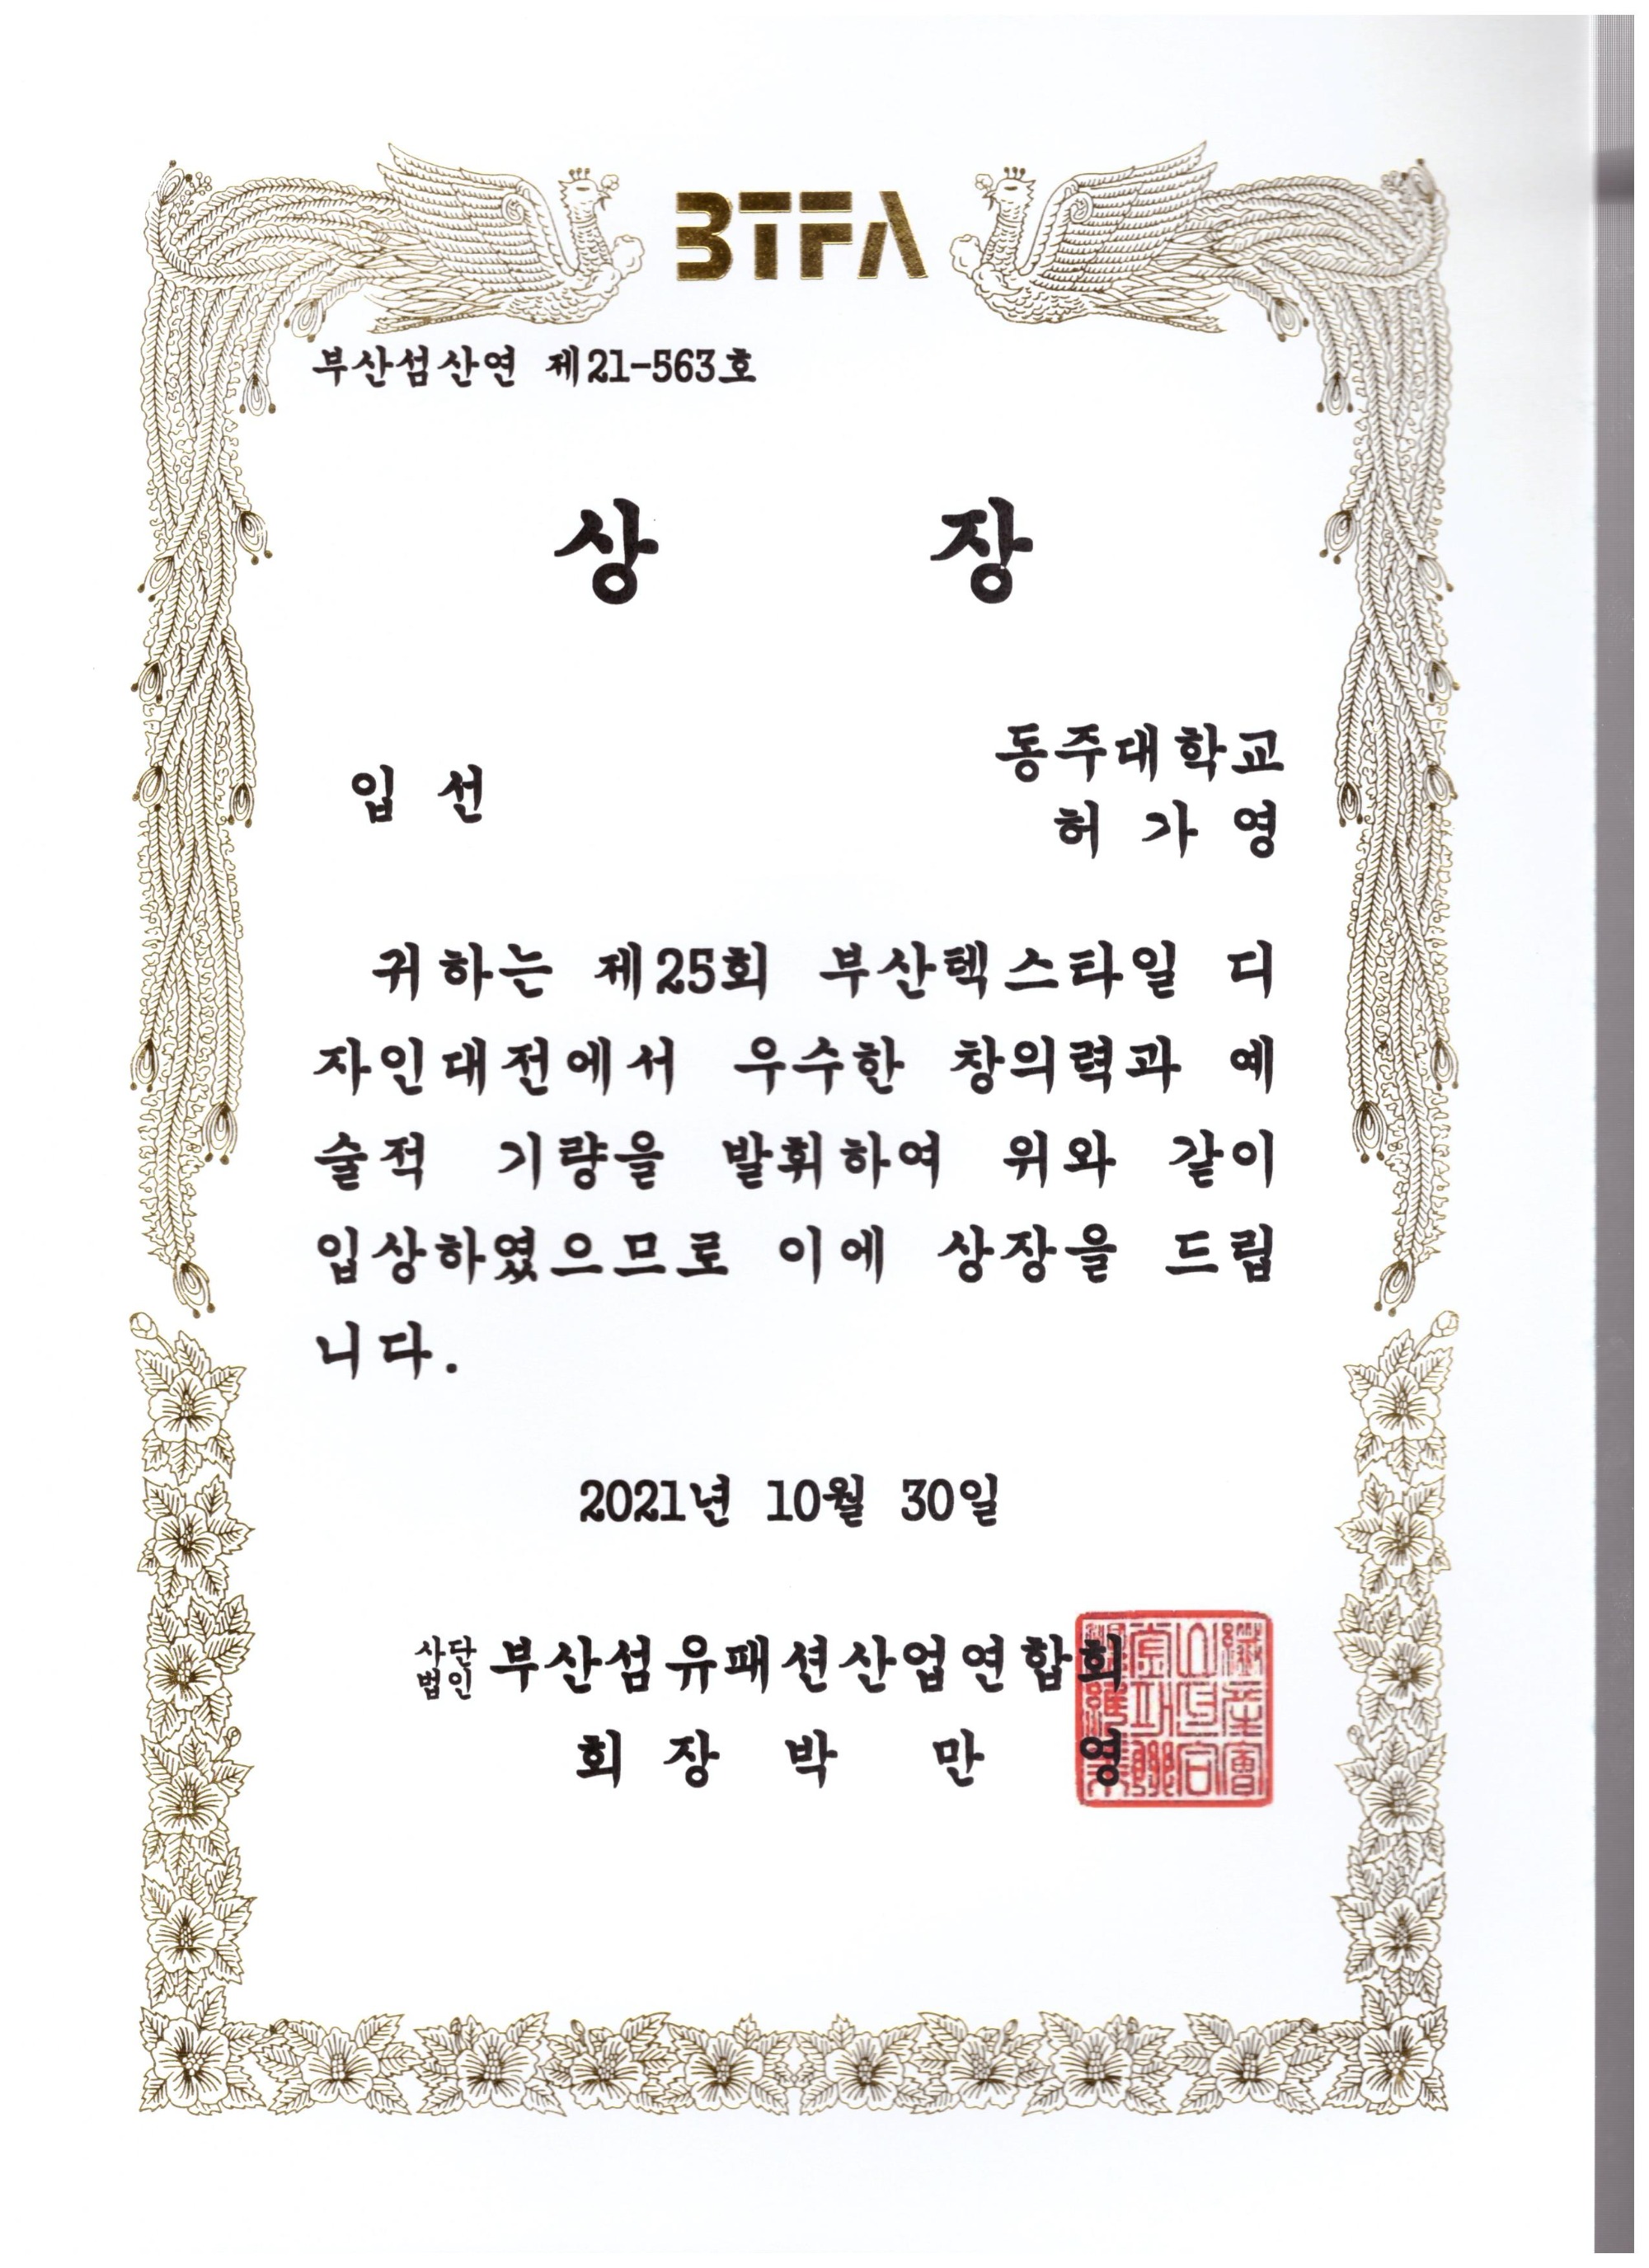 BTFA
부산섬산연 제21-563호
상 장
입 선
동주대학교
허 가 영
귀하는 제25회 부산텍스타일 디
자인대전에서 우수한 창의력과 예
술적 기량을 발휘하여 위와 같이
입상하였으므로 이에 상장을 드립
니다.
2021년 10월 30일
사단법인 부산섬유패션산업연합회
회 장 박 만 영